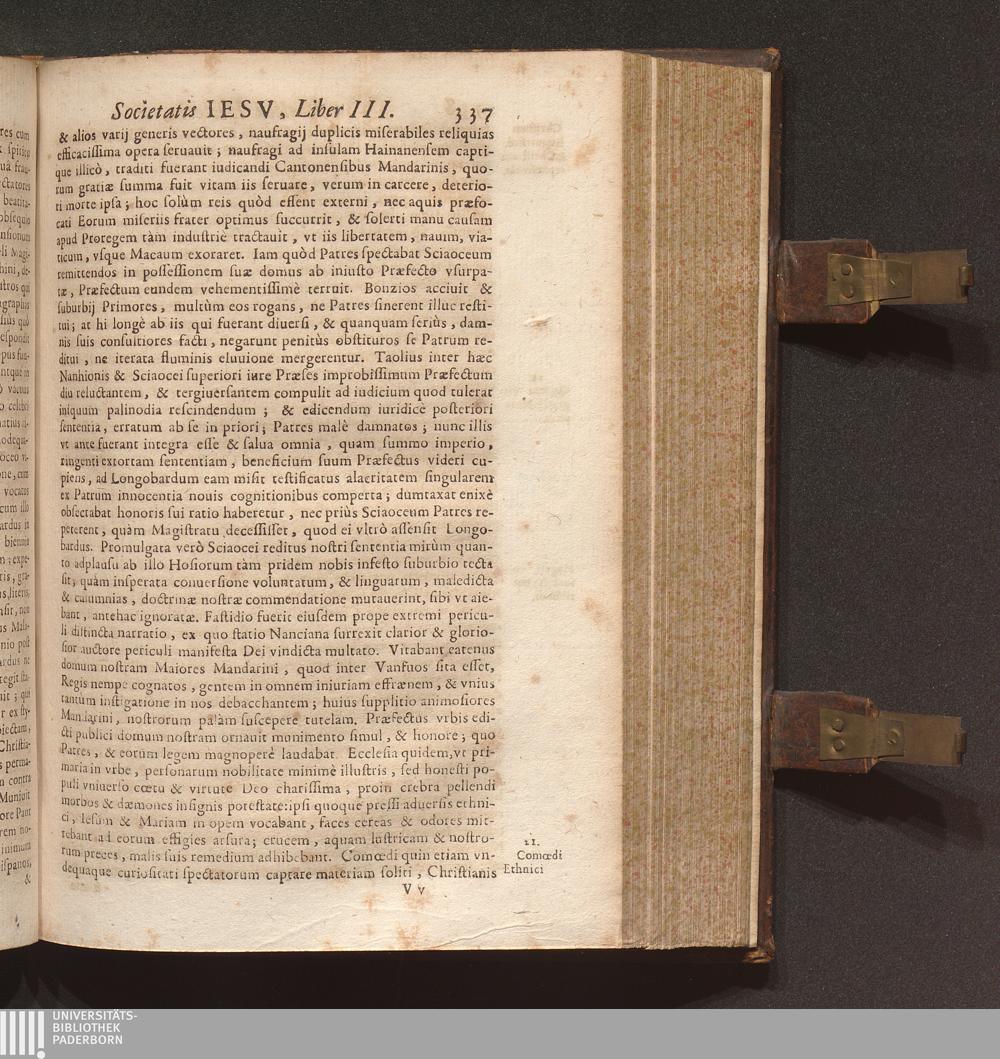 Societatis IESV, Liber III. 337
& alios varij generis vectores, naufragij duplicis miserabiles reliquias
efficacissima opera seruauit; naufragi ad insulam Hainanensem capti-
que illicò, traditi fuerant iudicandi Cantonensibus Mandarinis, quo-
rum gratiæ summa fuit vitam iis seruare, verum in carcere, deterio-
ri morte ipsa; hoc solùm reis quòd essent externi, nec aquis præfo-
cati Eorum miseriis frater optimus succurrit, & solerti manu causam
apud Proregem tàm industriè tractauit, vt iis libertatem, nauim, via-
ticum, vsque Macaum exoraret. Iam quòd Patres spectabat Sciaoceum
remittendos in possessionem suæ domus ab iniusto Præfecto vsurpa-
tæ, Præfectum eundem vehementissimè terruit. Bonzios acciuit &
suburbij Primores, multùm eos rogans, ne Patres sinerent illuc resti-
tui; at hi longè ab iis qui fuerant diuersi, & quanquam seriùs, dam-
nis suis consultiores facti, negarunt penitùs obstituros se Patrum re-
ditui, ne iterata fluminis eluuione mergerentur. Taolius inter hæc
Nanhionis & Sciaocei superiori iure Præses improbissimum Præfectum
diu reluctantem, & tergiuersantem compulit ad iudicium quod tulerat
iniquum palinodia rescindendum; & edicendum iuridicè posteriori
sententia, erratum ab se in priori; Patres malè damnatos; nunc illis
vt ante fuerant integra esse & salua omnia, quam summo imperio,
ringenti extortam sententiam, beneficium suum Præfectus videri cu-
piens, ad Longobardum eam misit testificatus alacritatem singularem
ex Patrum innocentia nouis cognitionibus comperta; dumtaxat enixè
obsectabat honoris sui ratio haberetur, nec priùs Sciaoceum Patres re-
peterent, quàm Magistratu decessisset, quod ei vltrò assensit Longo-
bardus. Promulgata verò Sciaocei reditus nostri sententia mirùm quan-
to adplausu ab illo Hosiorum tàm pridem nobis infesto suburbio tecta
sit, quàm insperata conuersione voluntatum, & linguarum, maledicta
& calumnias, doctrinæ nostræ commendatione mutauerint, sibi vt aie-
bant, antehac ignoratæ. Fastidio fuerit eiusdem prope extremi pericu-
li distincta narratio, ex quo statio Nanciana surrexit clarior & glorio-
sior auctore periculi manifesta Dei vindicta multato. Vitabant eatenus
domum nostram Maiores Mandarini, quod inter Vanfuos sita esset,
Regis nempe cognatos, gentem in omnem iniuriam effrænem, & vnius
tantùm instigatione in nos debacchantem; huius supplitio animosiores
Mandarini, nostrorum palàm suscepere tutelam. Præfectus vrbis edi-
cti publici domum nostram ornauit munimento simul, & honore; quo
Patres, & eorum legem magnoperè laudabat. Ecclesia quidem, vt pri-
maria in vrbe, personarum nobilitate minimè illustris, sed honesti po-
puli vniuerso cœtu & virtute Deo charissima, proin crebra pellendi
morbos & dæmones insignis potestate: ipsi quoque pressi aduersis ethni-
ci, Iesum & Mariam in opem vocabant, faces cereas & odores mit-
tebant ad eorum effigies arsura; crucem, aquam lustricam & nostro-
rum preces, malis suis remedium adhibebant. Comœdi quin etiam vn-
dequaque curiositati spectatorum captare materiam soliti, Christianis
21.
Comœdi
Ethnici
V v
UNIVERSITÄTS-
BIBLIOTHEK
PADERBORN